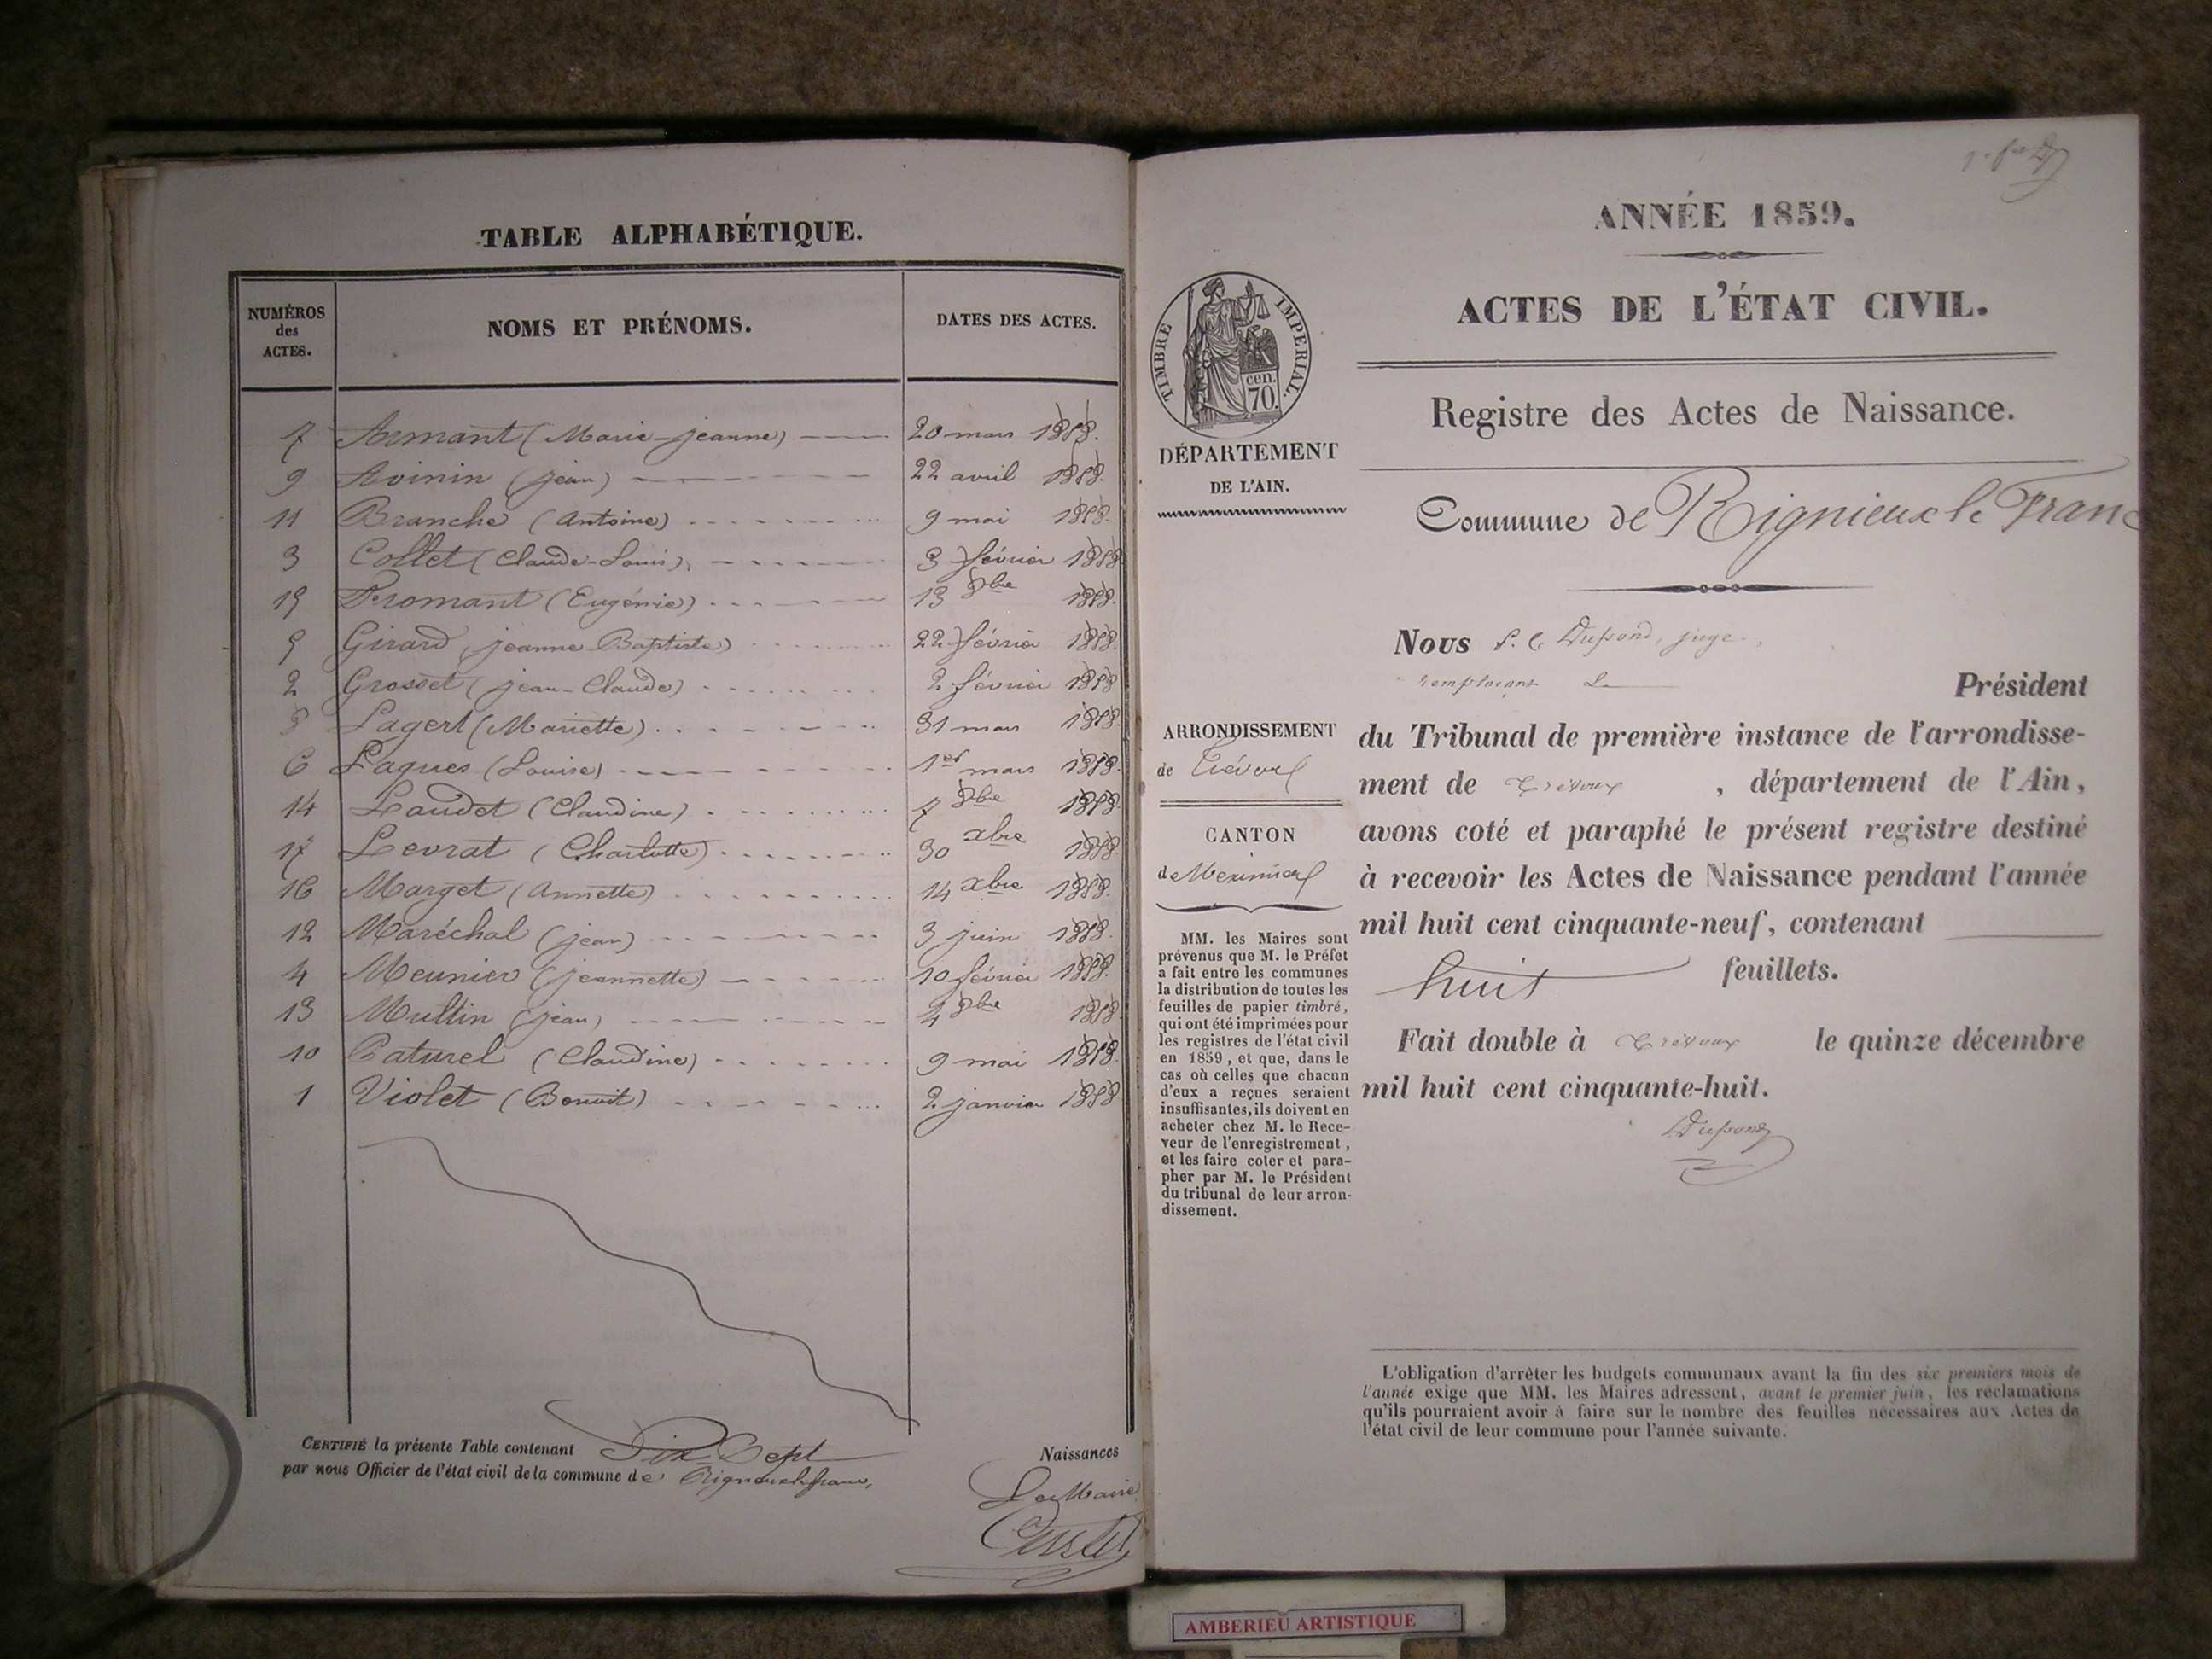 TABLE ALPHABÉTIQUE.
NUMÉROS des ACTES. NOMS ET PRÉNOMS. DATES DES ACTES.
7 Armant (Marie-jeanne) 20 mars 1858.
9 Avinin (jean) 22 avril 1858.
11 Branche (Antoine) 9 mai 1858.
3 Collet (Claude-Louis) 3 février 1858
15 Fromant (Eugénie) 13 8bre 1858.
5 Girard (jeanne Baptiste) 22 février 1858.
2 Grosset (jean-Claude) 2 février 1858
8 (Mariette) 31 mars 1858.
6 Laques (Louise) 1er mars 1858.
14 Laudet (Claudine) 7 8bre 1858
17 Levrat (Charlotte) 30 xbre 1858
16 Marget (Annette) 14 xbre 1858.
12 Maréchal (jean) 3 juin 1858.
4 Meunier (jeannette) 10 février 1858.
13 (jean) 8bre 1858
10 Paturel (Claudine) 9 mai 1858.
1 Violet (Benoit) 2 janvier 1858
CERTIFIÉ la présente Table contenant Dix-Sept Naissances
par nous Officier de l'état civil de la commune de Rignieux le franc,
Le Maire
ANNÉE 1859.
ACTES DE L'ÉTAT CIVIL.
TIMBRE IMPERIAL.
cen.
70.
DÉPARTEMENT
DE L'AIN.
Registre des Actes de Naissance.
Commune de Rignieux le Franc
ARRONDISSEMENT
de Trévoux
CANTON
de Meximieux
MM. les Maires sont
prévenus que M. le Préfet
a fait entre les communes
la distribution de toutes les
feuilles de papier timbré,
qui ont été imprimées pour
les registres de l'état civil
en 1859, et que, dans le
cas où celles que chacun
d'eux a reçues seraient
insuffisantes, ils doivent en
acheter chez M. le Rece-
veur de l'enregistrement,
et les faire coter et para-
pher par M. le Président
du tribunal de leur arron-
dissement.
Nous Dupond, juge,
remplaçant Le Président
du Tribunal de première instance de l'arrondisse-
ment de Trévoux, département de l'Ain,
avons coté et paraphé le présent registre destiné
à recevoir les Actes de Naissance pendant l'année
mil huit cent cinquante-neuf, contenant
huit feuillets.
Fait double à Trévoux le quinze décembre
mil huit cent cinquante-huit.
Dupond
L'obligation d'arrêter les budgets communaux avant la fin des six premiers mois de
l'année exige que MM. les Maires adressent, avant le premier juin, les réclamations
qu'ils pourraient avoir à faire sur le nombre des feuilles nécessaires aux Actes de
l'état civil de leur commune pour l'année suivante.
AMBERIEU ARTISTIQUE